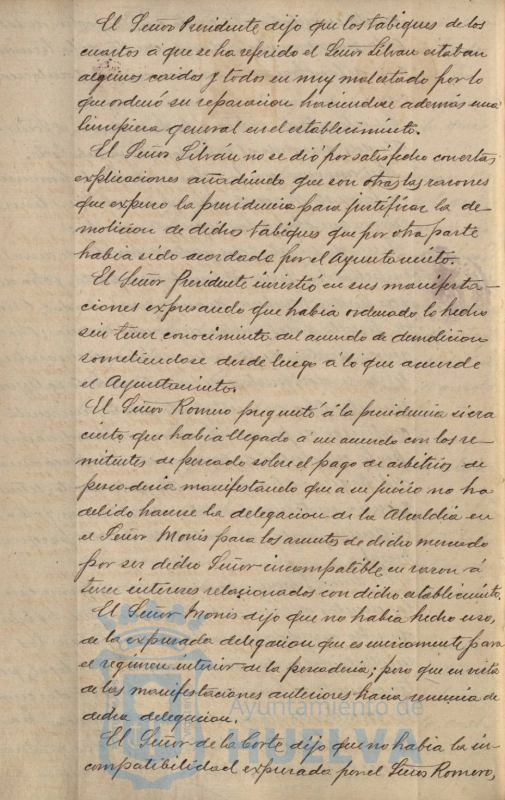 El Señor Presidente dijo que los tabiques de los
cuartos á que se ha referido el Señor Silván estaban
algunos caidos y todos en muy mal estado por lo
que ordenó su reparacion haciendose además una
limpieza general en el establecimiento.
El Señor Silván no se dió por satisfecho con estas
explicaciones añadiendo que son otras las razones
que expuso la presidencia para justificar la de
molicion de dichos tabiques que por otra parte
habia sido acordada por el Ayuntamiento.
El Señor Presidente insistió en sus manifesta-
ciones expresando que habia ordenado lo hecho
sin tener conocimiento del acuerdo de demolicion
sometiendose desde luego á lo que acuerde
el Ayuntamiento.
El Señor Romero preguntó á la presidencia si era
cierto que habia llegado á un acuerdo con los re-
mitentes de pescado sobre el pago de arbitrios de
pescaderia manifestando que á su juicio no ha
debido hacerse la delegacion de la Alcaldia en
el Señor Monis para los asuntos de dicho mercado
por ser dicho Señor incompatible en razon á
tener intereses relacionados con dicho establecimiento.
El Señor Monis dijo que no habia hecho uso,
de la expresada delegacion que es unicamente para
el regimen interior de la pescaderia; pero que en vista
de las manifestaciones anteriores hacia renuncia de
dicha delegacion.
El Señor de la Corte dijo que no habia la in-
compatibilidad expresada por el Señor Romero,
Ayuntamiento de
HUELVA